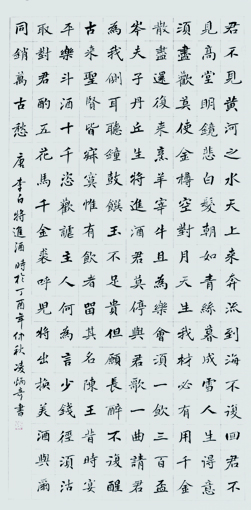 君不見黄河之水天上來奔流到海不復回君不
見高堂明鏡悲白髮朝如青絲暮成雪人生得意
須盡歡莫使金樽空對月天生我材必有用千金
散盡還復來烹羊宰牛且為樂會須一飲三百盃
岑夫子丹丘生將進酒君莫停與君歌一曲請君
為我側耳聽鐘鼓饌玉不足貴但願長醉不復醒
古來聖賢皆寂寞惟有飲者留其名陳王昔時宴
平樂斗酒十千恣歡謔主人何為言少錢徑須沽
取對君酌五花馬千金裘呼兒將出換美酒與爾
同銷萬古愁 唐李白將進酒時於丁酉年仲秋凌炳奇書